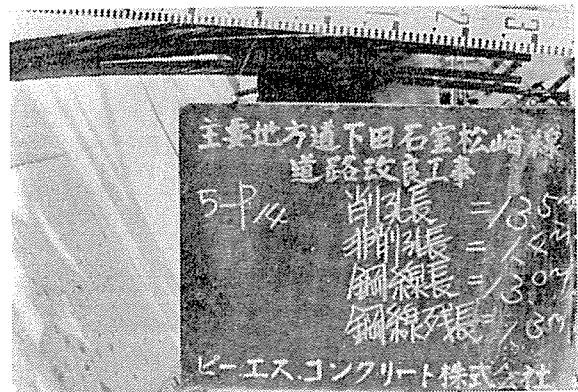 主要地方道下田石室松崎線
道路改良工事
5-P14
削孔長 =13.5m
非削孔長 =1.4m
鋼線長 =13.0m
鋼線残長=1.3m
ピーエス.コンクリート株式会社